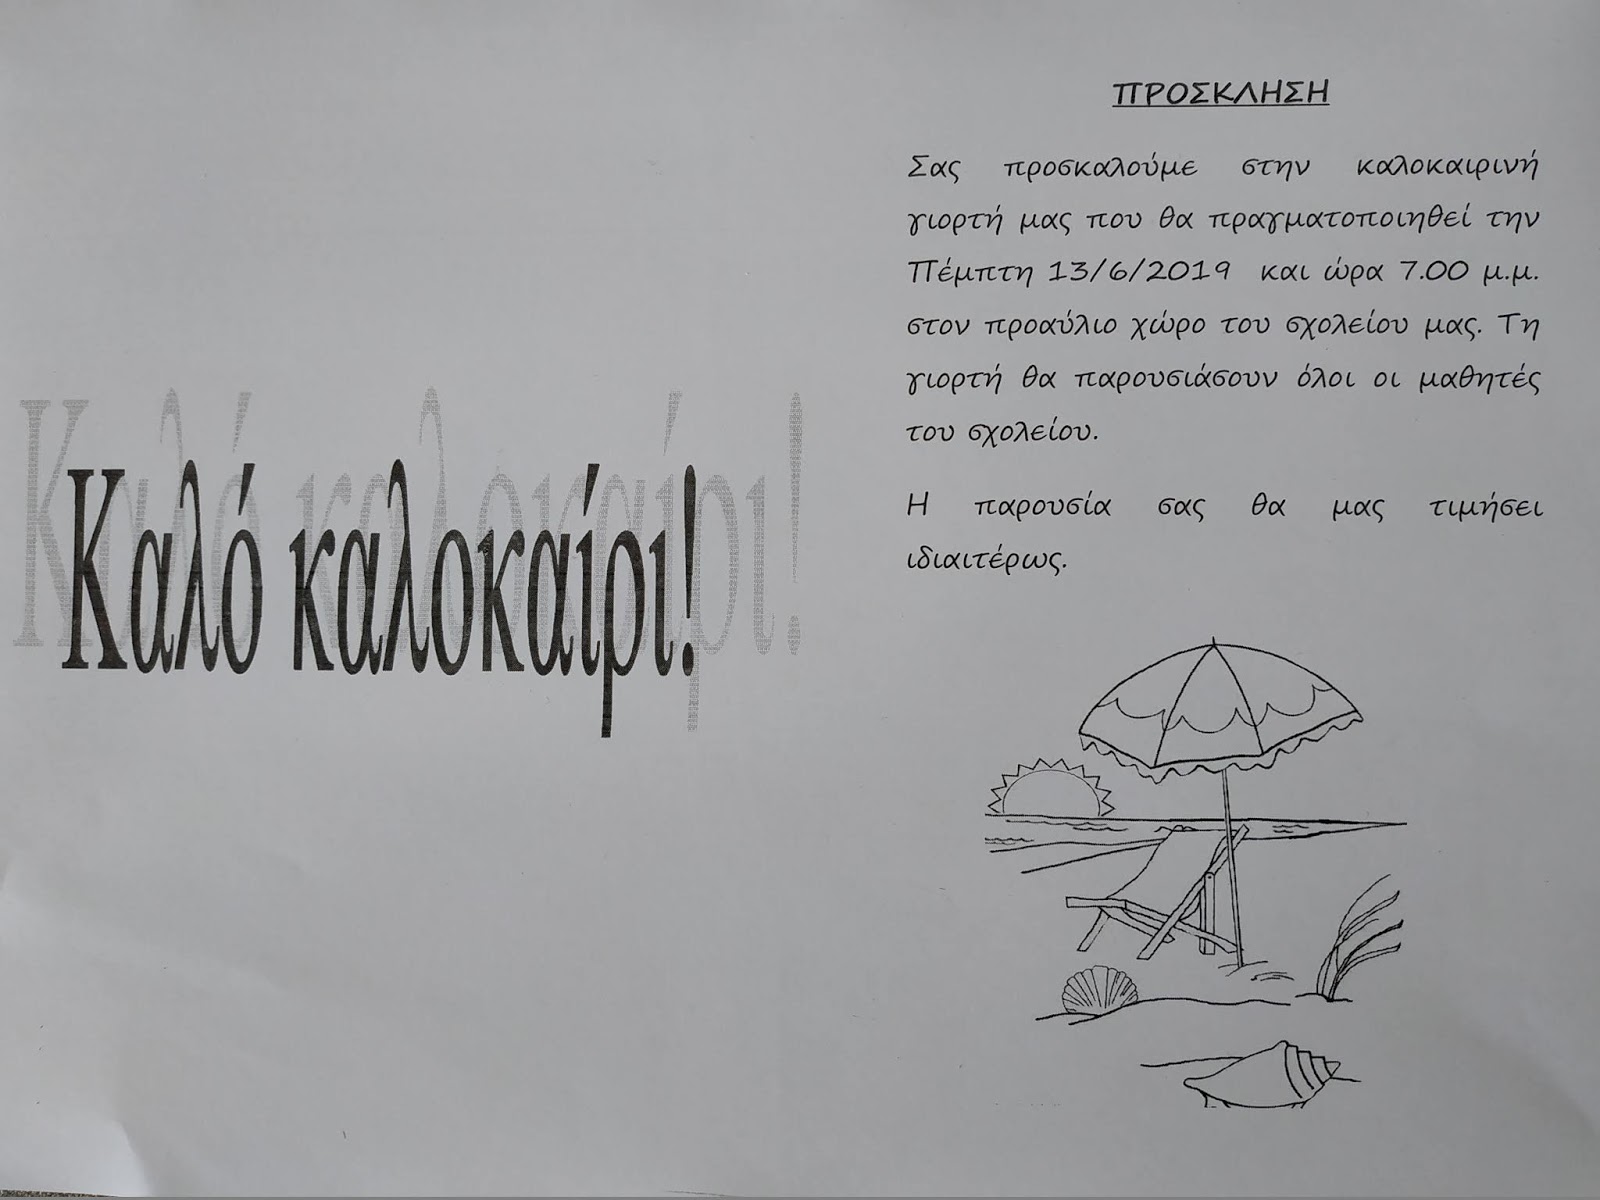 Καλό καλοκαίρι!
ΠΡΟΣΚΛΗΣΗ
Σας προσκαλούμε στην καλοκαιρινή
γιορτή μας που θα πραγματοποιηθεί την
Πέμπτη 13/6/2019 και ώρα 7.00 μ.μ.
στον προαύλιο χώρο του σχολείου μας. Τη
γιορτή θα παρουσιάσουν όλοι οι μαθητές
του σχολείου.
Η παρουσία σας θα μας τιμήσει
ιδιαιτέρως.